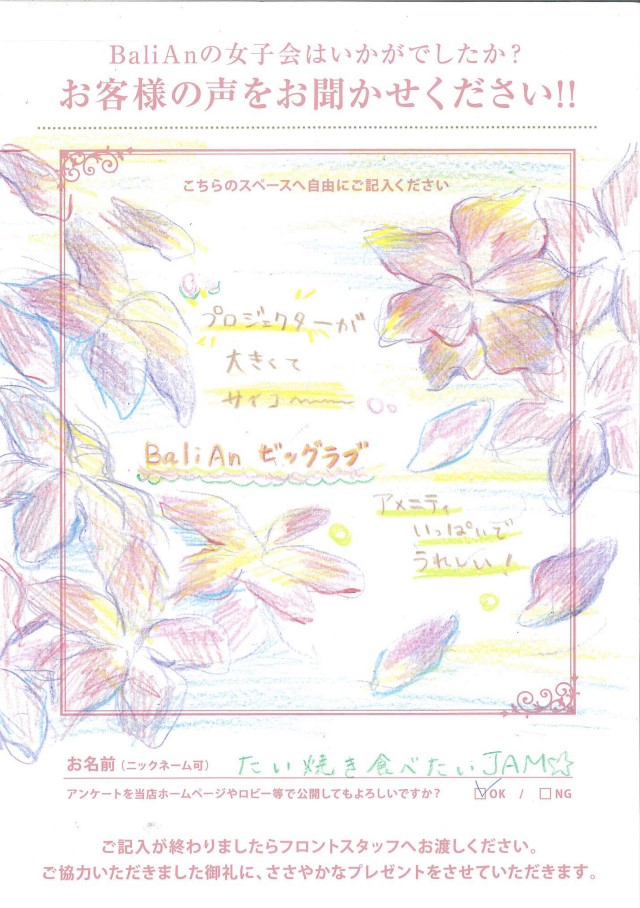 BaliAnの女子会はいかがでしたか?
お客様の声をお聞かせください!!
こちらのスペースへ自由にご記入ください
プロジェクターが
大きくて
サイコ〜〜〜
BaliAn ビッグラブ
アメニティ
いっぱいで
うれしい!
お名前(ニックネーム可) たい焼き食べたいJAM☆
アンケートを当店ホームページやロビー等で公開してもよろしいですか? ☑OK / □NG
ご記入が終わりましたらフロントスタッフへお渡しください。
ご協力いただきました御礼に、ささやかなプレゼントをさせていただきます。